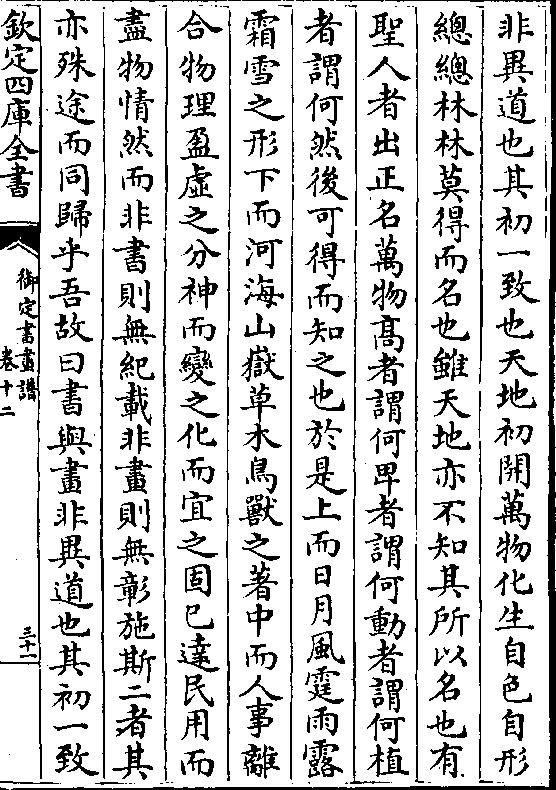 非異道也其初一致也天地初開萬物化生自色自形
總總林林莫得而名也雖天地亦不知其所以名也有
聖人者出正名萬物髙者謂何卑者謂何動者謂何植
者謂何然後可得而知之也於是上而日月風霆雨露
霜雪之形下而河海山嶽草木鳥獸之著中而人事離
合物理盈虛之分神而變之化而宜之固已達民用而
盡物情然而非書則無紀載非畫則無彰施斯二者其
亦殊途而同歸乎吾故曰書與畫非異道也其初一致
欽定四庫全書
御定書畫譜
卷十二
三十一